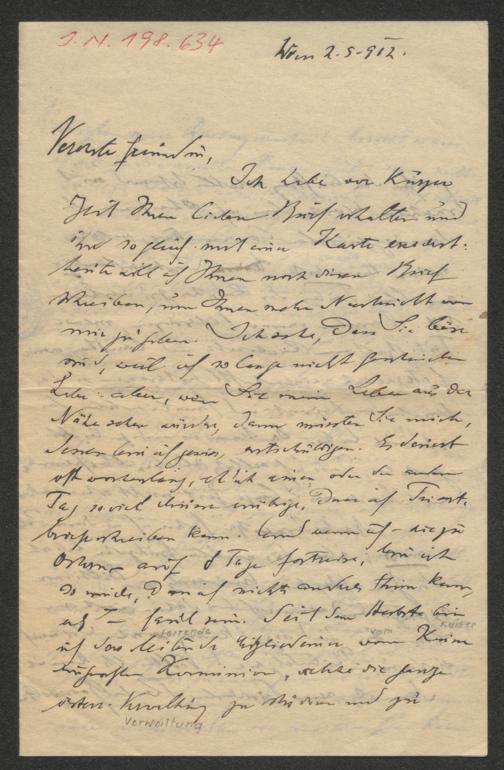 I.N. 198.634
Wien 2.5.912.
Verehrte Freundin,
Ich habe vor kurzer
Zeit Ihren lieben Brief erhalten und
ihn sogleich mit einer Karte erwidert.
heute will ich Ihnen noch diesen Brief
schreiben, um Ihnen mehr Nachricht von
mir zu geben. Ich sehe, dass Sie böse
sind, weil ich so lange nicht geschrieben
habe. aber, wenn Sie mein Leben aus der
Nähe sehen würden, dann müssten Sie mich,
dessen bin ich gewiss, entschuldigen. Es dauert
oft wochenlang, ehe ich einen oder den anderen
Tag so viel erübrige, dass ich Privat-
briefe schreiben kann. Und wenn ich – wie zu
Ostern auf 8 Tage fortreise, bin ich
so müde, dass ich nichts anderes thun kann,
als – faul sein. Seit dem Herbste bin
ich das leitende Mitglied einer vom Kaiser
leitende vom Kaiser
Kommission, welche die ganze
österr. Verwaltung zu studieren und zu
Verwaltung